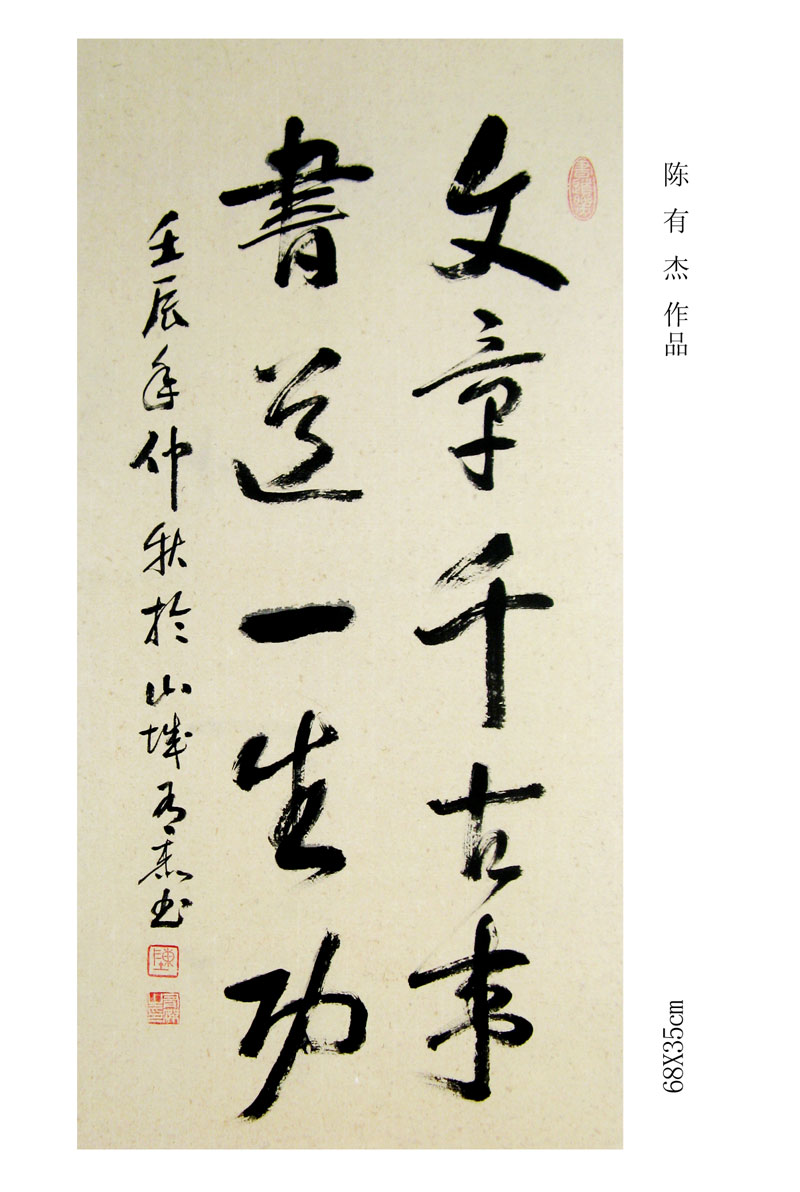 文章千古事
書道一生功
壬辰年仲秋於山城有杰书
陳
陈有杰作品
68X35cm